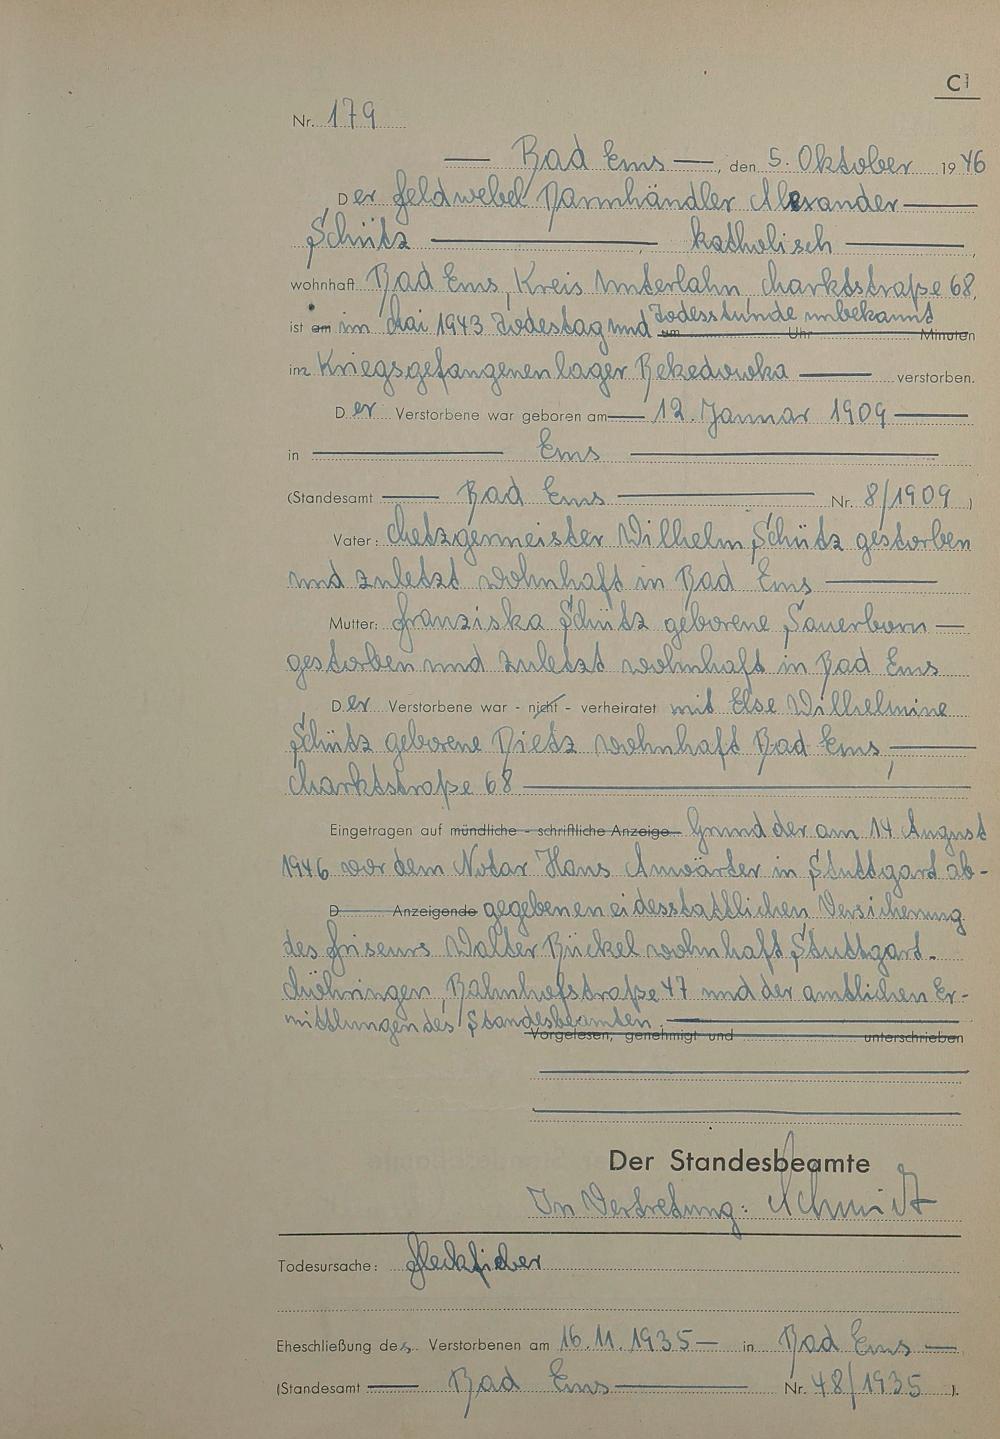 C1
Nr. 179
Bad Ems, den 5. Oktober 1946
Der Feldwebel Alexander
Schütz, katholisch,
wohnhaft Bad Ems, Kreis Unterlahn, Marktstraße 68,
ist am im Mai 1943 Todestag und Todesstunde unbekannt um Uhr Minuten
im Kriegsgefangenenlager Bekedowka verstorben.
Der Verstorbene war geboren am 12. Januar 1909
in Ems
(Standesamt Bad Ems Nr. 8/1909)
Vater: Metzgermeister Wilhelm Schütz gestorben
und zuletzt wohnhaft in Bad Ems
Mutter: Franziska Schütz geborene Sauerborn
gestorben und zuletzt wohnhaft in Bad Ems
Der Verstorbene war - nicht - verheiratet mit Else Wilhelmine
Schütz geborene Dietz wohnhaft Bad Ems,
Marktstraße 68
Eingetragen auf mündliche - schriftliche Anzeige Grund der am 14 August
1946 vor dem Notar Hans Anwärter in Stuttgart ab-
D Anzeigende gegebenen eidesstattlichen Versicherung
des Friseurs Walter Bückel wohnhaft Stuttgart-
Möhringen, Bahnhofstraße 47 und der amtlichen Er-
mittlungen des Standesbeamten.
Vorgelesen, genehmigt und unterschrieben
Der Standesbeamte
In Vertretung: Schmidt
Todesursache: Fleckfieber
Eheschließung des Verstorbenen am 16.11.1935 in Bad Ems
(Standesamt Bad Ems Nr. 48/1935).